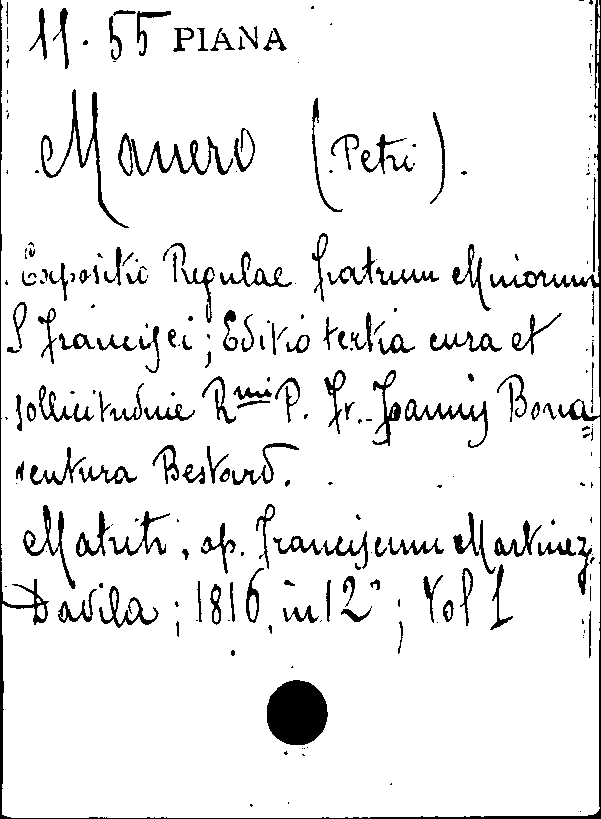 11. 55 PIANA
Manero (Petri).
Expositio Regulae fratrum Minorum
S Francisci; Editio tertia cura et
sollicitudine Rmi P. Fr. Joannis Bona=
ventura Bestard.
Matriti, ap. Franciscum Martinez
Davila; 1816, in 12°; Vol 1